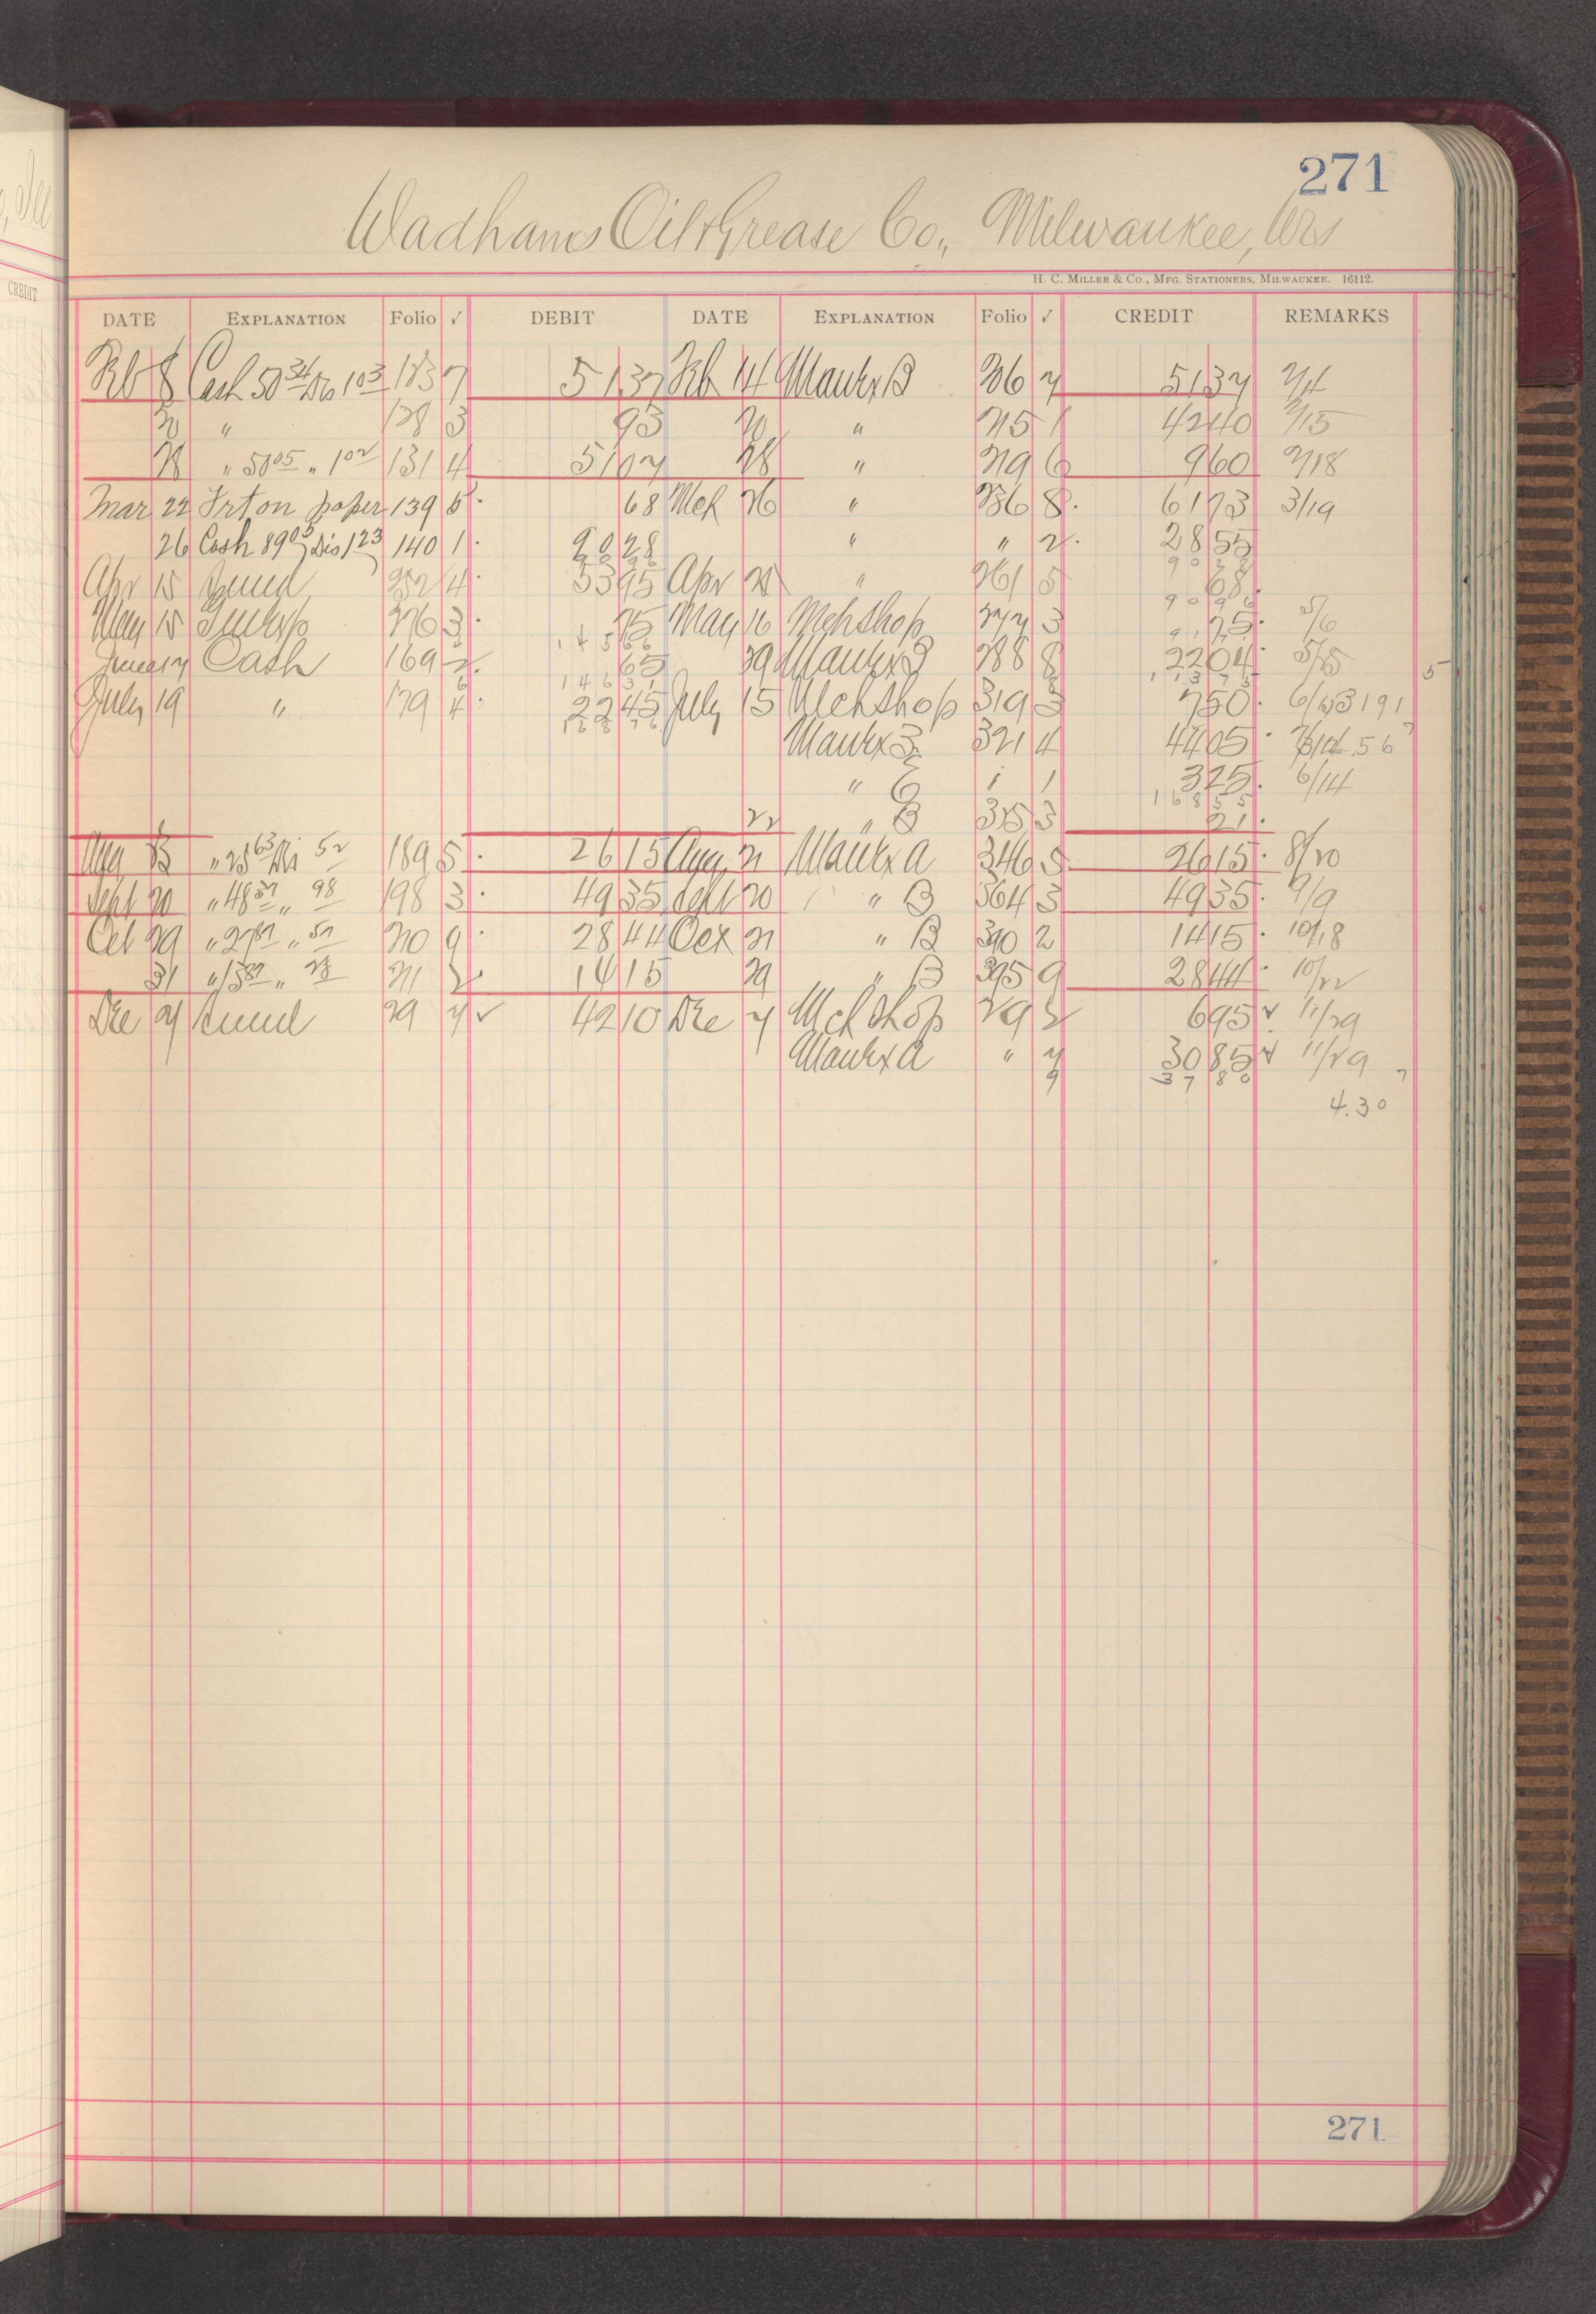 271
Wadhams Oil & Grease Co., Milwaukee, Wis
H. C. Miller & Co., Mfg. Stationers, Milwaukee. 16112.
CREDIT
DATE Explanation Folio ✓ DEBIT DATE Explanation Folio ✓ CREDIT REMARKS
Feb 8 Cash 50 34 Dis 1 03 123 7 51 37 Feb 14 B 26 7 51 37 2/4
20 " 128 3 93 20 " 215 1 42 40 2/15
28 " 50 05 " 1 02 131 4 51 07 28 " 219 6 9 60 2/18
Mar 22 Frt on paper 139 5 68 Mch 26 " 236 8 61 73 3/19
26 Cash 89 05 Dis 1 23 140 1 90 28 " " 2 28 55
90 28
Apr 15 252 4 53 95 Apr 21 " 261 5 68
90 96
May 15 276 3 75 May 16 Mch Shop 277 3 75 5/6
145 66
June 17 Cash 169 2 65 29 B 288 8 22 04 5/25
146 31 113 75
July 19 " 179 4 22 45 July 15 Mch Shop 319 3 7 50 6/
168 76
321 4 44 05
" 1 3 25 6/14
168 55
22 " B 325 3 21
Aug 13 " 25 63 Di 52 189 5 26 15 Aug 21 A 346 5 26 15 8/20
Sept 20 " 48 37 " 98 198 3 49 35 Sept 20 " B 364 3 49 35 9/9
Oct 29 " 27 87 " 57 210 9 28 44 Oct 21 " B 390 2 14 15 10/18
31 " 13 87 " 28 211 2 14 15 29 " B 395 9 28 44 10/22
Dec 27 29 7 ✓ 42 10 Dec 7 Mch Shop 29 2 6 95 ✓ 11/29
A " 7 30 85 ✓ 11/29
9 37 80
4.30
271